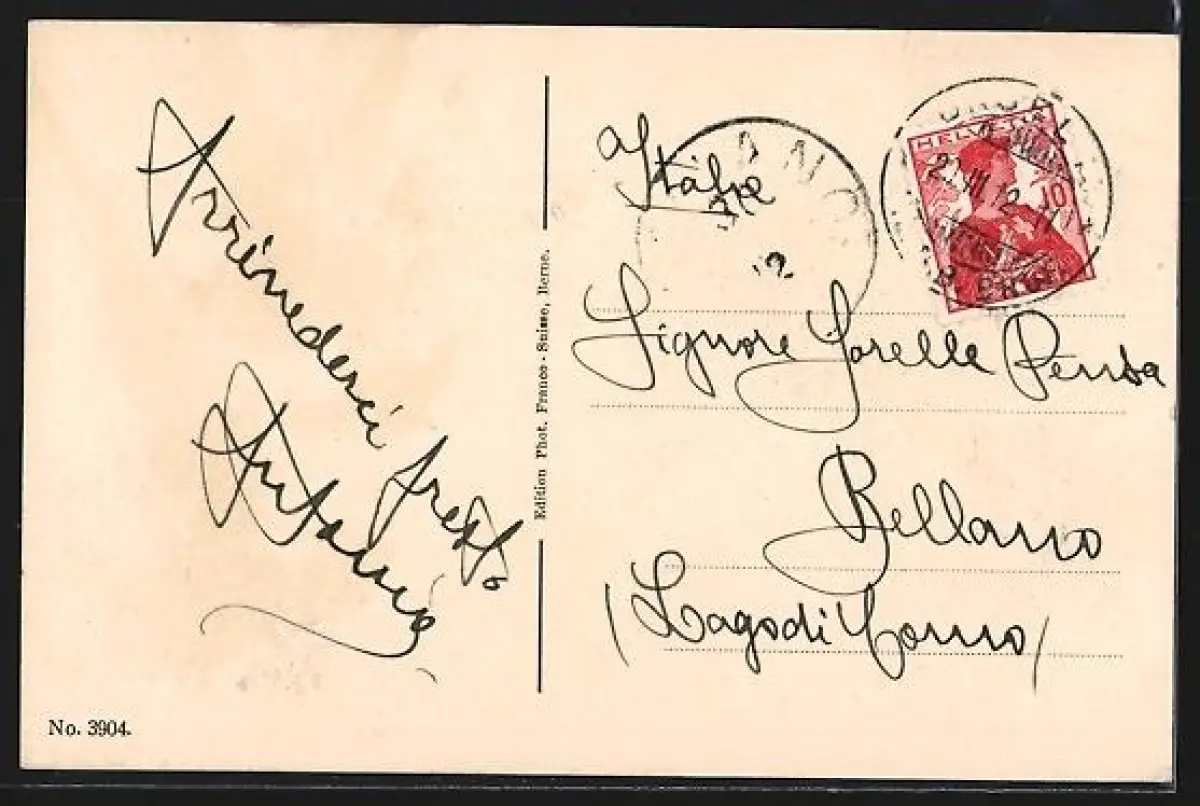 Arrivederci presto
Antonio
No. 3904.
Edition Phot. Franco-Suisse, Berne.
Italie
HELVETIA
10
Signore Sorelle Pensa
Bellano
(Lago di Como)